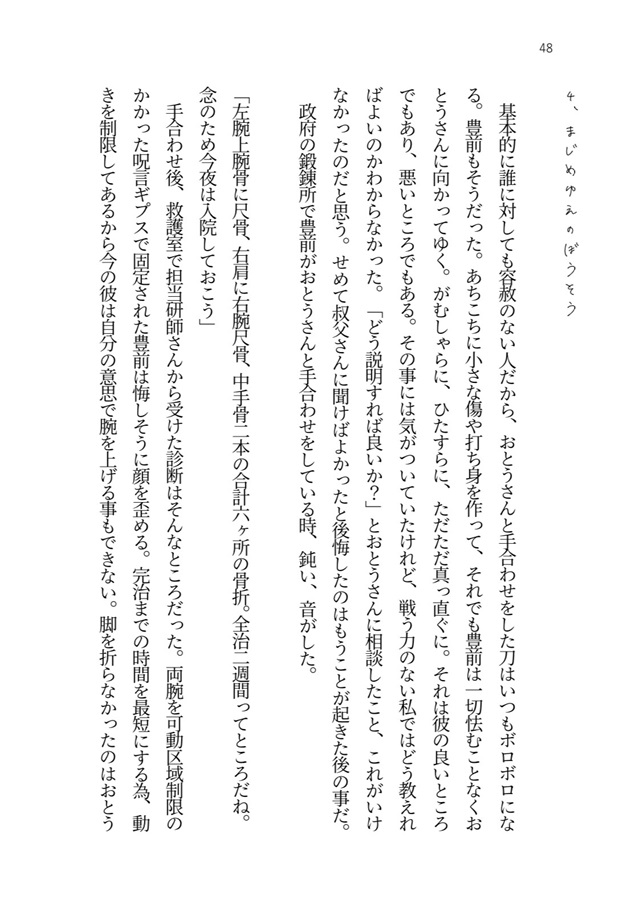 48
4、まじめゆえのぼうそう
基本的に誰に対しても容赦のない人だから、おとうさんと手合わせをした刀はいつもボロボロにな
る。豊前もそうだった。あちこちに小さな傷や打ち身を作って、それでも豊前は一切怯むことなくお
とうさんに向かってゆく。がむしゃらに、ひたすらに、ただただ真っ直ぐに。それは彼の良いところ
でもあり、悪いところでもある。その事には気がついていたけれど、戦う力のない私ではどう教えれ
ばよいのかわからなかった。「どう説明すれば良いか?」とおとうさんに相談したこと、これがいけ
なかったのだと思う。せめて叔父さんに聞けばよかったと後悔したのはもうことが起きた後の事だ。
政府の鍛錬所で豊前がおとうさんと手合わせをしている時、鈍い、音がした。
「左腕上腕骨に尺骨、右肩に右腕尺骨、中手骨二本の合計六ヶ所の骨折。全治二週間ってところだね。
念のため今夜は入院しておこう」
手合わせ後、救護室で担当研師さんから受けた診断はそんなところだった。両腕を可動区域制限の
かかった呪言ギプスで固定された豊前は悔しそうに顔を歪める。完治までの時間を最短にする為、動
きを制限してあるから今の彼は自分の意思で腕を上げる事もできない。脚を折らなかったのはおとう